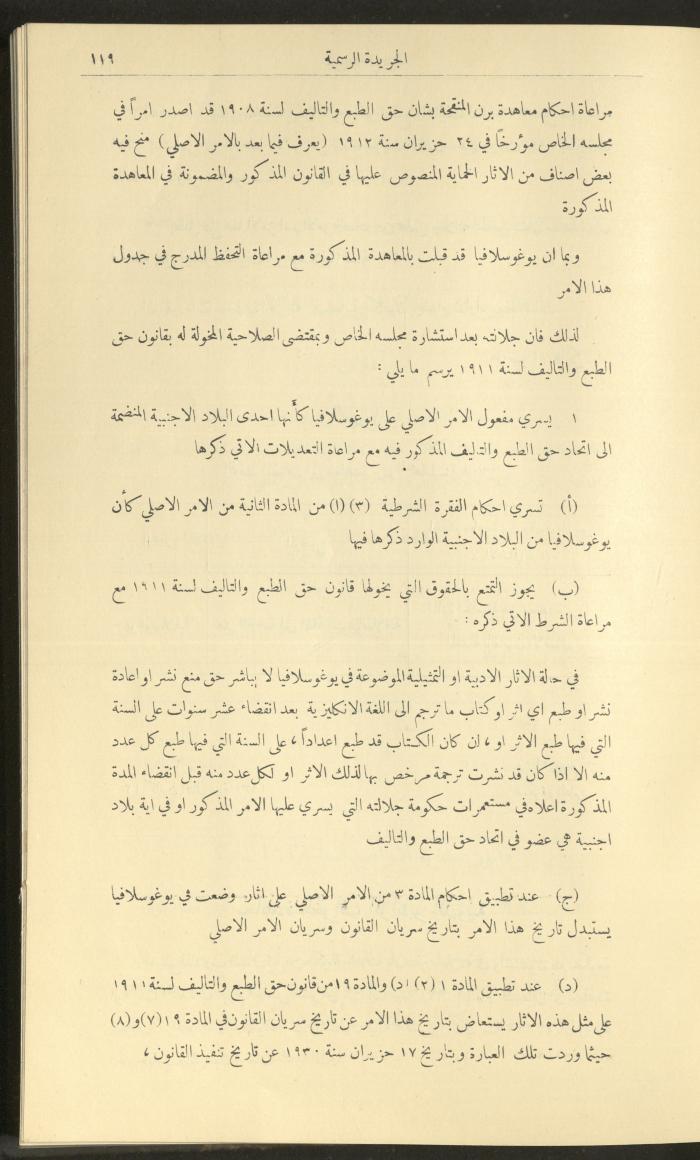 الجريدة الرسمية ١١٩
مراعاة احكام معاهدة برن المنقحة بشان حق الطبع والتاليف لسنة ١٩٠٨ قد اصدر امراً في
مجلسه الخاص مؤرخاً في ٢٤ حزيران سنة ١٩١٢ (يعرف فيما بعد بالامر الاصلي) منح فيه
بعض اصناف من الاثار الحماية المنصوص عليها في القانون المذكور والمضمونة في المعاهدة
المذكورة
وبما ان يوغوسلافيا قد قبلت بالمعاهدة المذكورة مع مراعاة التحفظ المدرج في جدول
هذا الامر
لذلك فان جلالته بعد استشارة مجلسه الخاص وبمقتضى الصلاحية المخولة له بقانون حق
الطبع والتاليف لسنة ١٩١١ يرسم ما يلي :
١ يسري مفعول الامر الاصلي على يوغوسلافيا كأنها احدى البلاد الاجنبية المنضمة
الى اتحاد حق الطبع والتاليف المذكور فيه مع مراعاة التعديلات الاتي ذكرها
(أ) تسري احكام الفقرة الشرطية (٣) (ا) من المادة الثانية من الامر الاصلي كأن
يوغوسلافيا من البلاد الاجنبية الوارد ذكرها فيها
(ب) يجوز التمتع بالحقوق التي يخولها قانون حق الطبع والتاليف لسنة ١٩١١ مع
مراعاة الشرط الاتي ذكره :
في حالة الاثار الادبية او التمثيلية الموضوعة في يوغوسلافيا لا يباشر حق منع نشر او اعادة
نشر او طبع اي اثر او كتاب ما ترجم الى اللغة الانكليزية بعد انقضاء عشر سنوات على السنة
التي فيها طبع الاثر او ، ان كان الكتاب قد طبع اعداداً ، على السنة التي فيها طبع كل عدد
منه الا اذا كان قد نشرت ترجمة مرخص بها لذلك الاثر او لكل عدد منه قبل انقضاء المدة
المذكورة اعلاه في مستعمرات حكومة جلالته التي يسري عليها الامر المذكور او في اية بلاد
اجنبية هي عضو في اتحاد حق الطبع والتاليف
(ج) عند تطبيق احكام المادة ٣ من الامر الاصلي على اثار وضعت في يوغوسلافيا
يستبدل تاريخ هذا الامر بتاريخ سريان القانون وسريان الامر الاصلي
(د) عند تطبيق المادة ١ (٢) (د) والمادة ١٩ من قانون حق الطبع والتاليف لسنة ١٩١١
على مثل هذه الاثار يستعاض بتاريخ هذا الامر عن تاريخ سريان القانون في المادة ١٩ (٧) و (٨)
حيثما وردت تلك العبارة وبتاريخ ١٧ حزيران سنة ١٩٣٠ عن تاريخ تنفيذ القانون ،